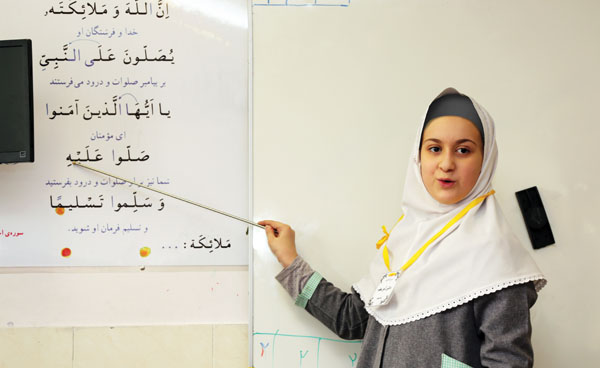 اِنَّ اللّٰهَ وَ مَلائِكَتَهُ
خدا و فرشتگان او
يُصَلّونَ عَلَى النَّبِيِّ
بر پیامبر صلوات و درود می‌فرستند
يا اَيُّهَا الَّذينَ آمَنوا
ای مؤمنان
صَلّوا عَلَيْهِ
شما نیز بر او صلوات و درود بفرستید
وَ سَلِّموا تَسْليمًا
و تسلیم فرمان او شوید.
سوره‌ی
مَلائِكَة : ...
۲ ۲ ۲